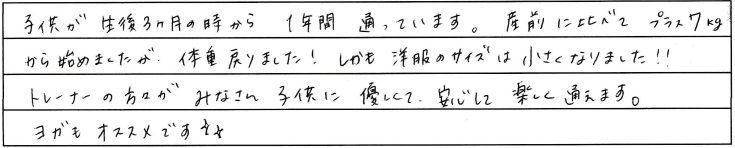 子供が生後3ヶ月の時から 1年間 通っています。産前に比べて プラス7kg
から始めましたが、体重戻りました! しかも 洋服のサイズは 小さくなりました!!
トレーナーの方々が みなさん 子供に 優しくて、安心して 楽しく 通えます。
ヨガも オススメです